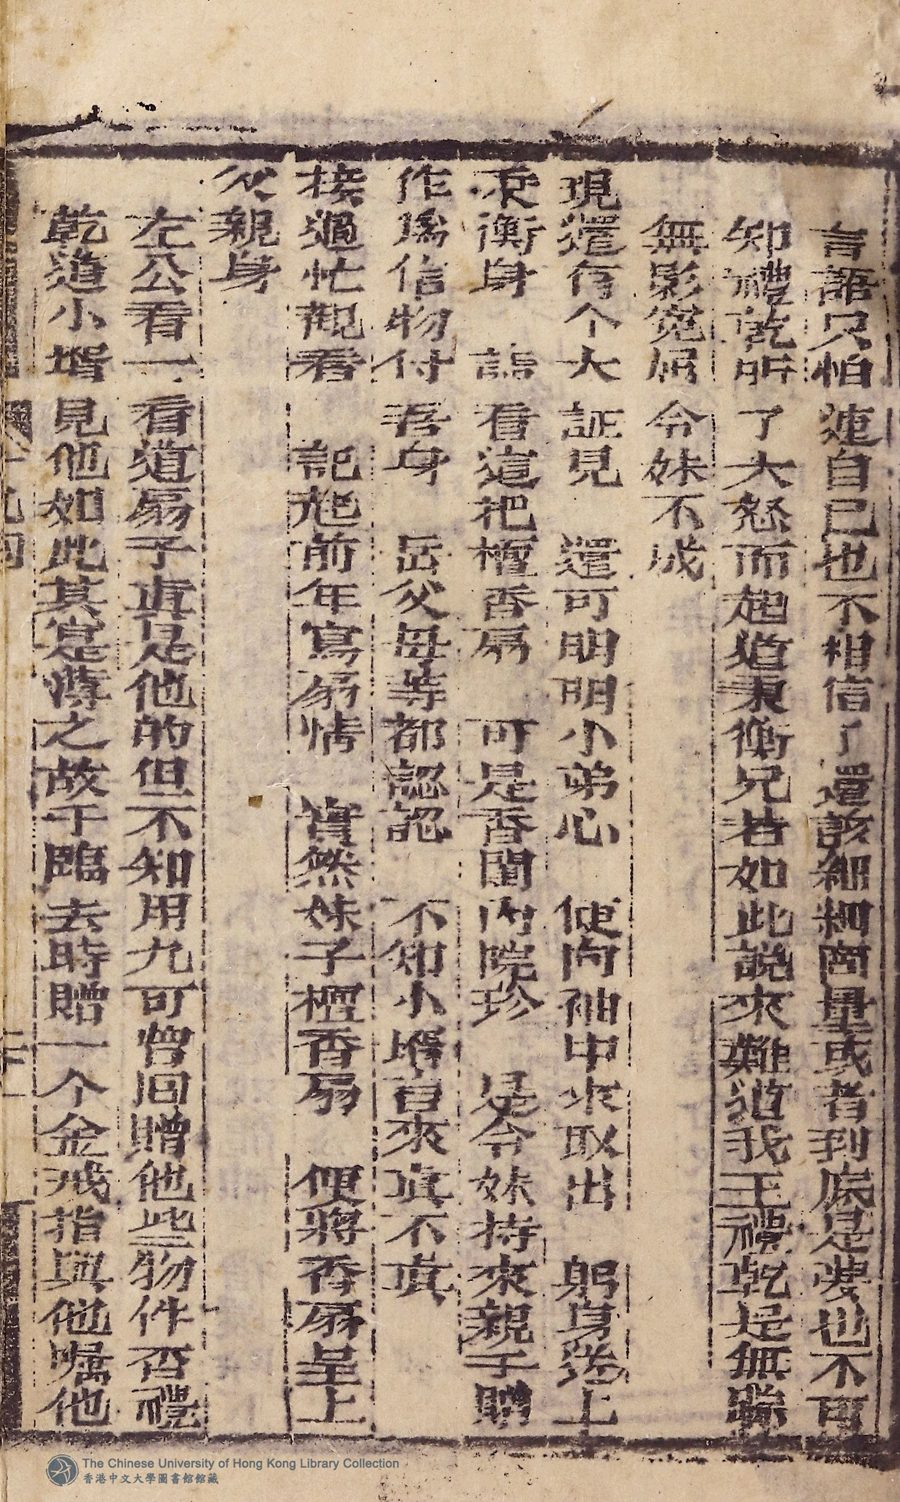 言語只怕連自己也不相信了還該細細啇量或者到底是夢也不可
知禮乾听了大怒而起道秉衡兄若如此說來難道我王禮乾是無踪
無影寃屈令妹不成
現還有个大証見　還可明明小弟心　便向袖中來取出　躬身送上
秉衡身　請看這把檀香扇　可是香閨内院珍　是令妹持來親手贈
作爲信物付吾身　岳父母等都認認　不知小壻言來真不真
接過忙觀看　記起前年寫扇情　實然妹子檀香扇　便將香扇呈上
父親身
左公看一看道扇子真是他的但不知用九可曾回贈他些物件否禮
乾道小壻見他如此其寔薄之故于臨去時贈一个金戒指與他嘱他
The Chinese University of Hong Kong Library Collection
香港中文大學圖書館館藏